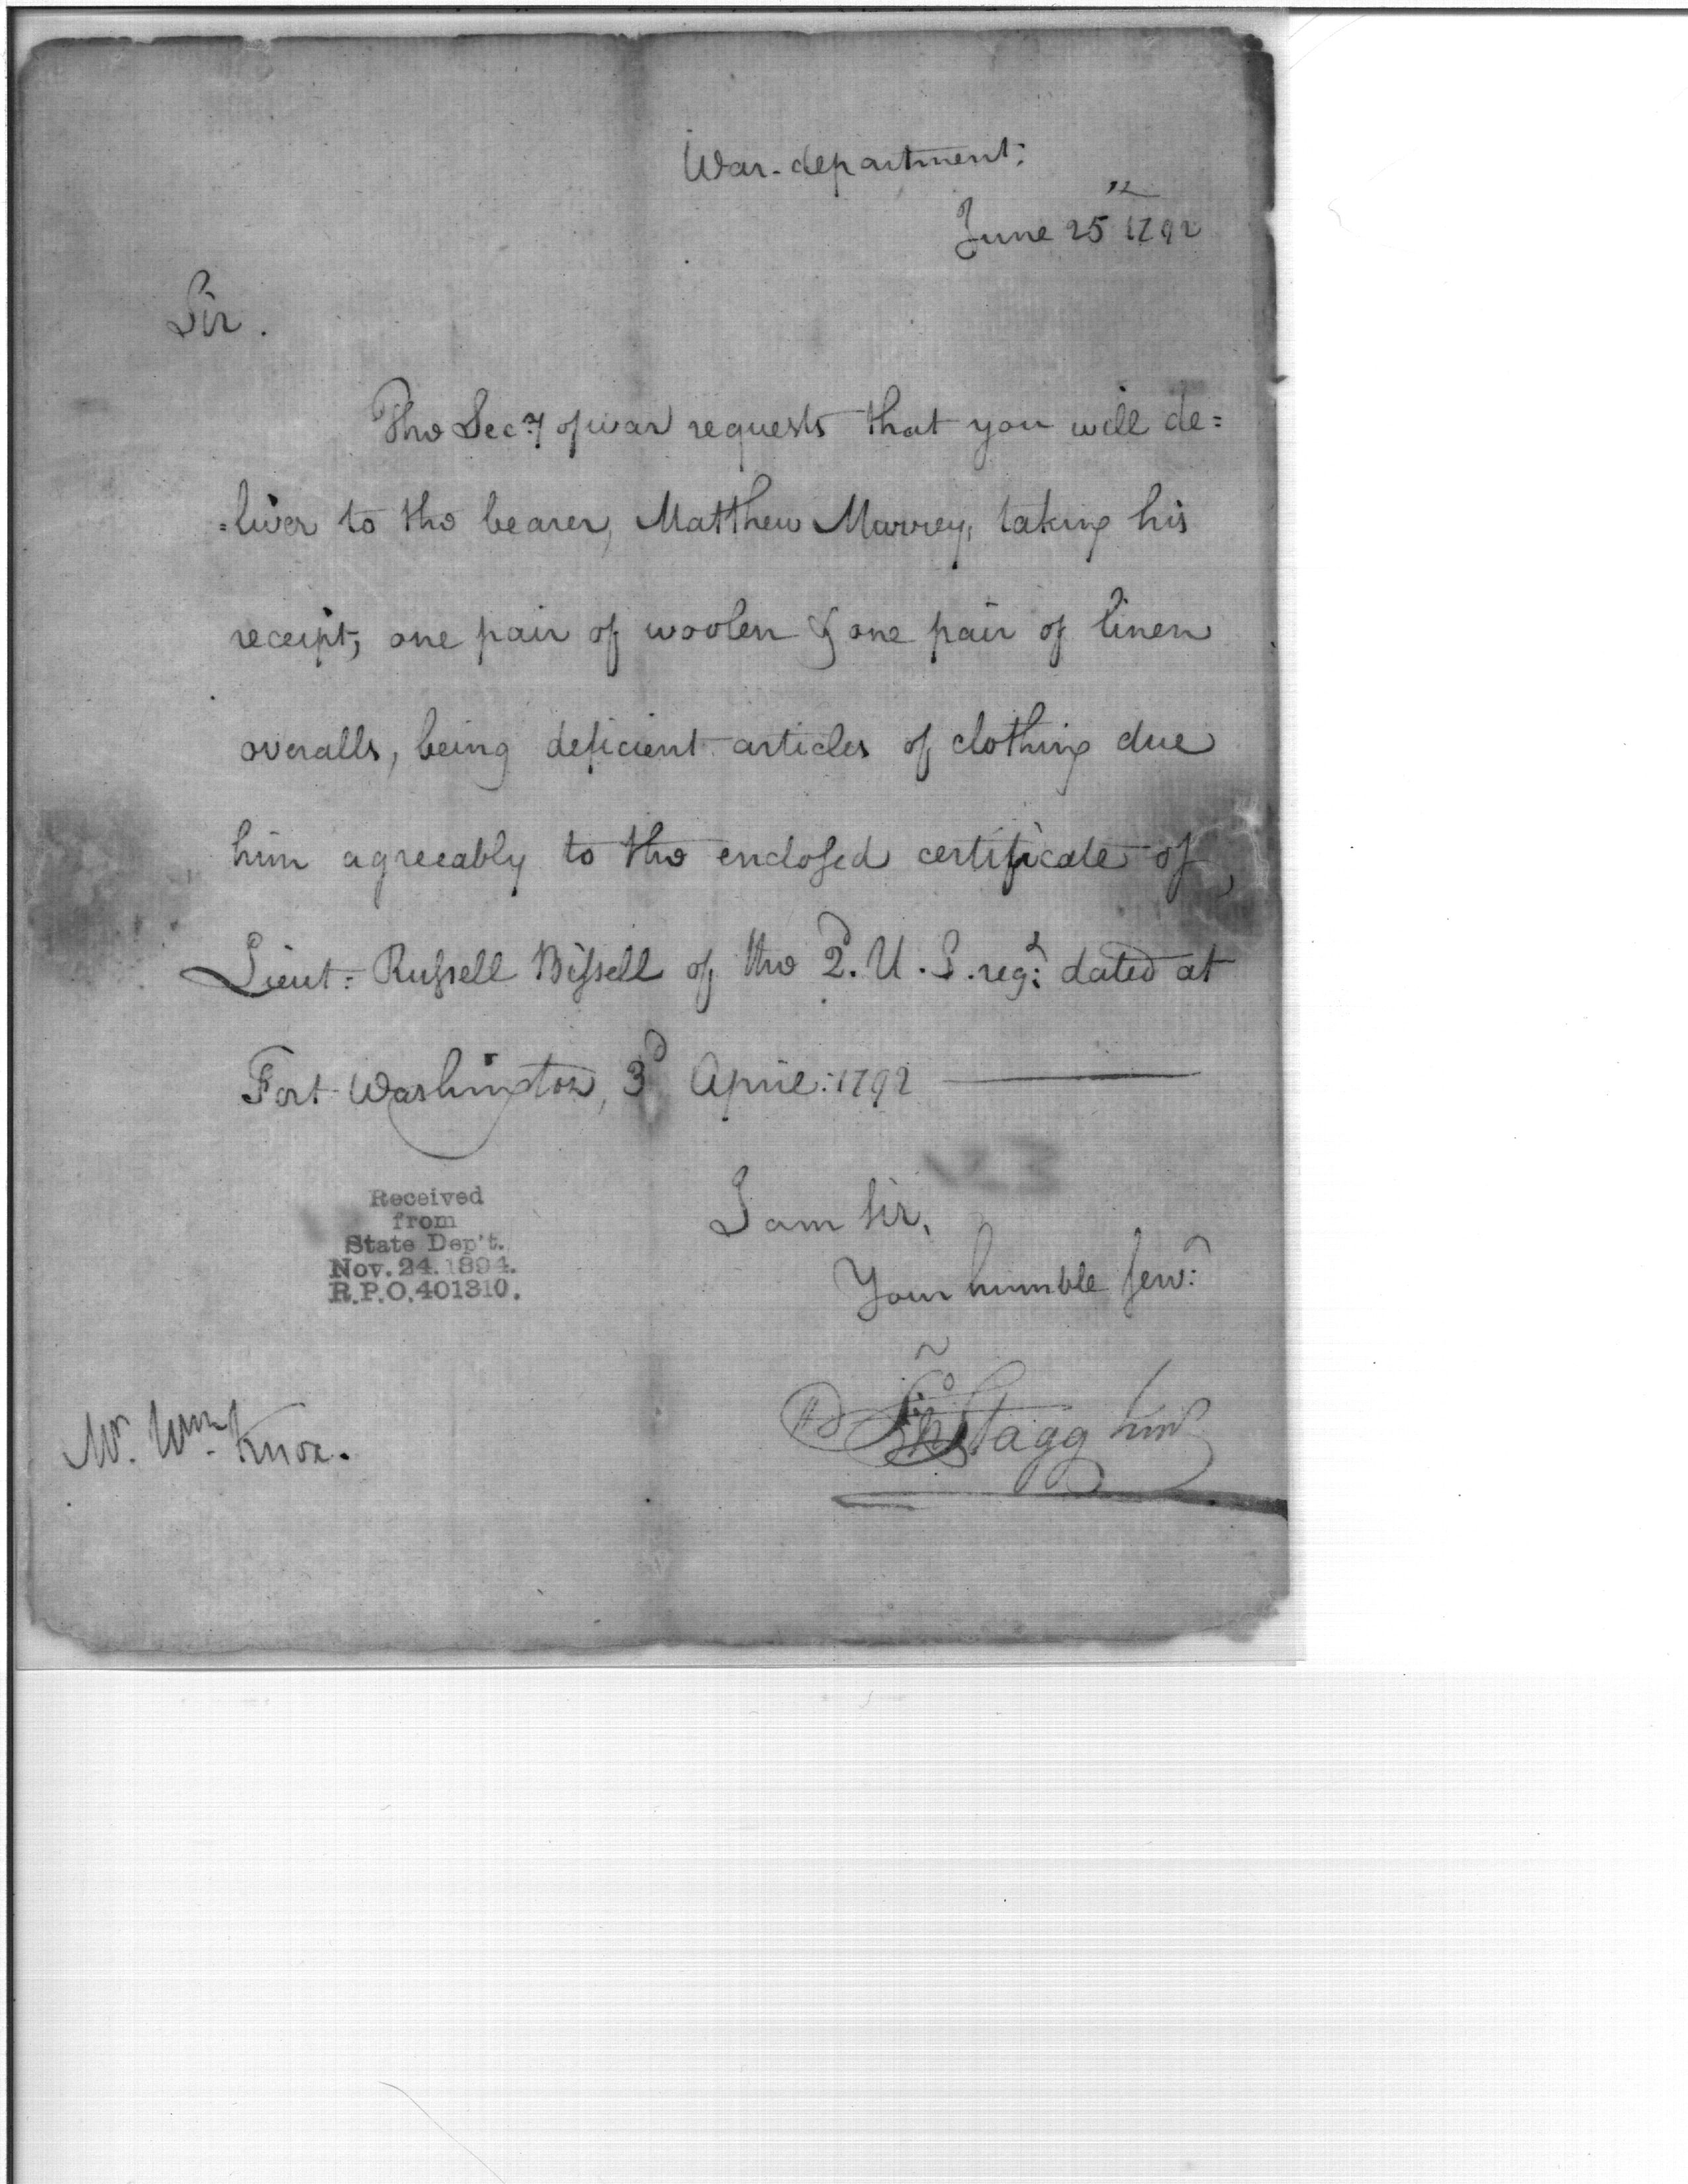 War-department:
June 25th 1792
Sir.
The Secy of war requests that you will de=
=liver to the bearer, Matthew Murrey, taking his
receipt, one pair of woolen & one pair of linen
overalls, being deficient articles of clothing due
him agreeably to the enclosed certificate of
Lieut: Russell Bissell of the 2d. U.S. regt: dated at
Fort Washington, 3d April: 1792
I am Sir,
Your humble servt:
Stagg junr
Mr. Wm. Knox.
Received
from
State Dep't.
Nov. 24. 1894.
R.P.O. 401310.